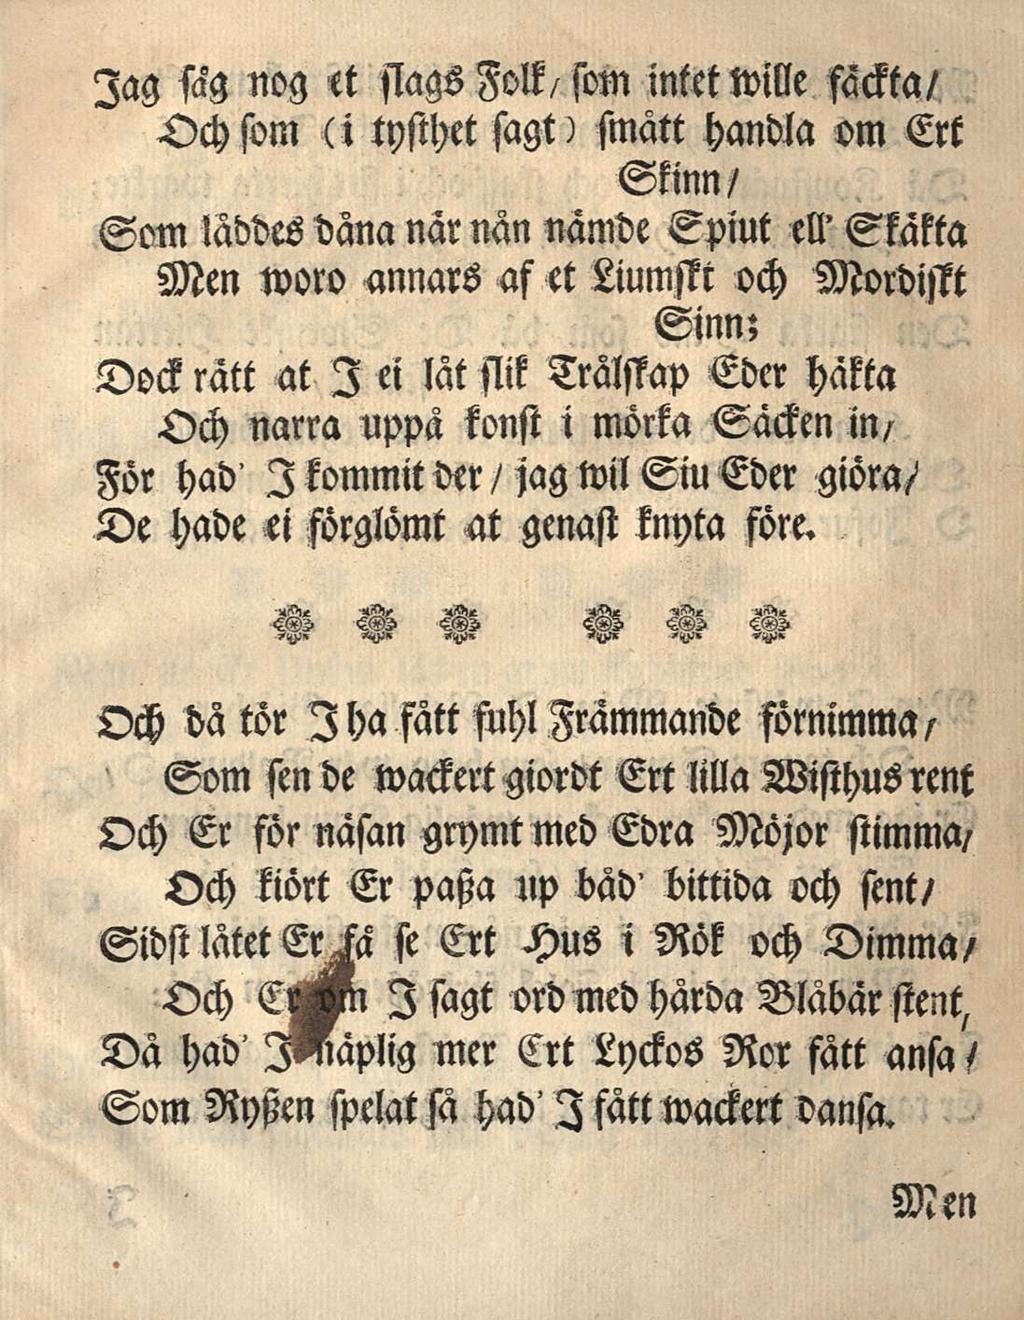 Jag såg nog et slags Folk / som intet wille fäckta /
Och som (i tysthet sagt) smått handla om Ert
Skinn /
Som läddes dåna när nån nämde Spiut ell' Skäkta
Men woro annars af et Liumskt och Mordiskt
Sinn;
Dock rätt at J ei låt slik Trälskap Eder häkta
Och narra uppå konst i mörka Säcken in /
För had' J kommit der / jag wil Siu Eder giöra /
De hade ei förglömt at genast knyta före.
Och då tör J ha fått fuhl Främmande förnimma /
Som sen de wackert giordt Ert lilla Wisthus rent
Och Er för näsan grymt med Edra Möjor stimma /
Och kiört Er paßa up båd' bittida och sent /
Sidst låtet Er få se Ert Hus i Rök och Dimma /
Och Er om J sagt ord med hårda Blåbär stent,
Då had' J näplig mer Ert Lyckos Ror fått ansa /
Som Ryßen spelat så had' J fått wackert dansa.
Men